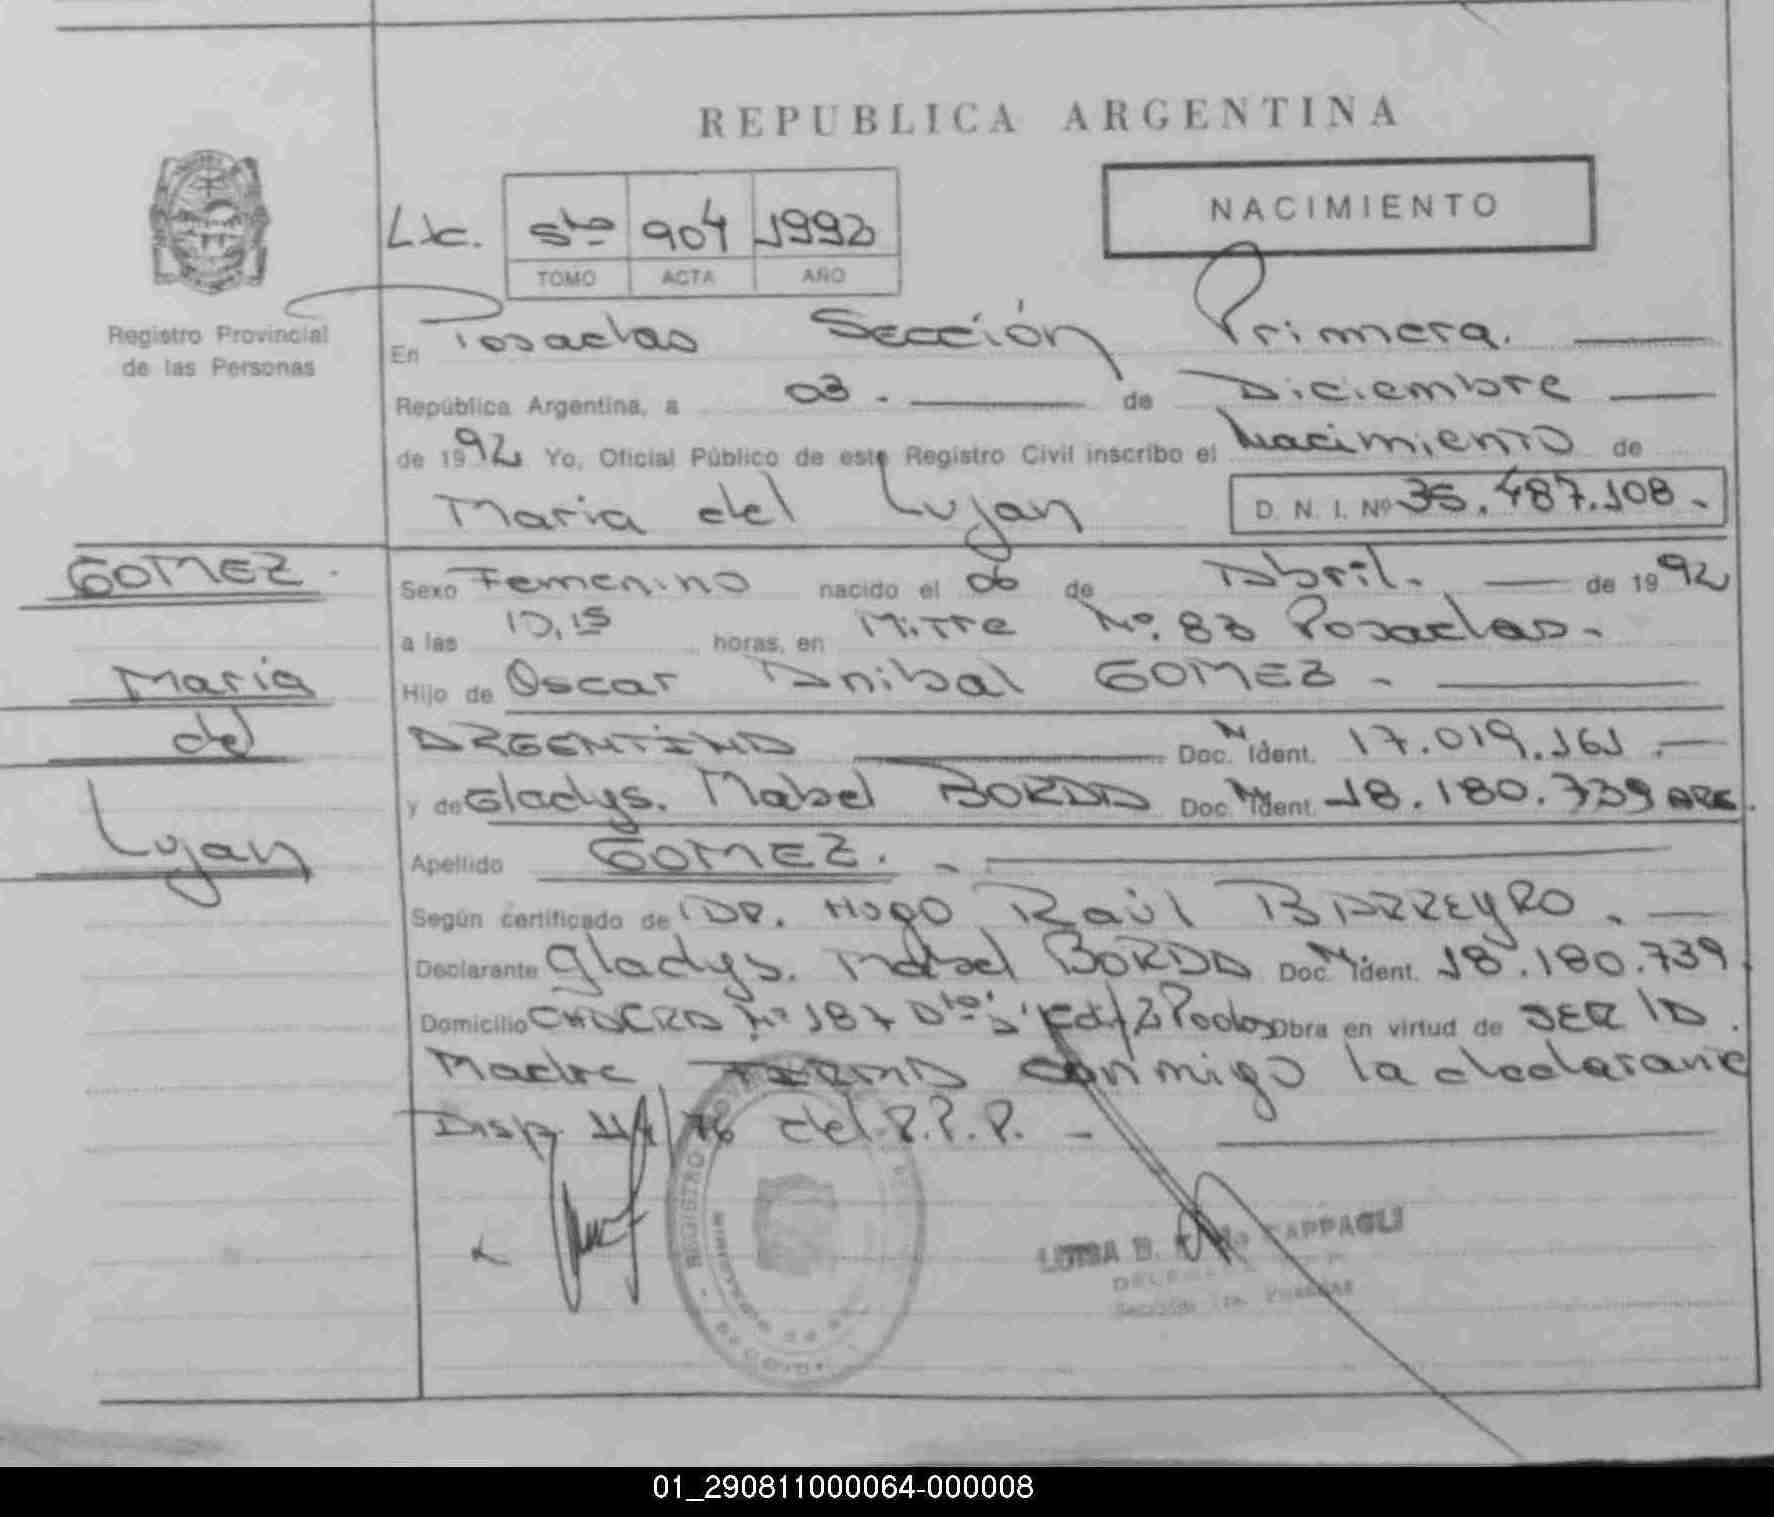 REPUBLICA ARGENTINA
NACIMIENTO
Lic. 5to 904 1992
TOMO ACTA AÑO
Registro Provincial
de las Personas
En Posadas Sección Primera.
República Argentina, a 03. de Diciembre
de 1992 Yo, Oficial Público de este Registro Civil inscribo el Nacimiento de
Maria del Lujan D. N. I. Nº 36.487.108.
GOMEZ.
Maria
del
Lujan
Sexo Femenino nacido el 06 de Abril. de 1992
a las horas, en Mitre Nº. 83 Posadas.
Hijo de Oscar Anibal GOMEZ.
ARGENTINA Doc. Ident. 17.019.161.
y de Gladys. Mabel BORDA Doc. Ident. 18.180.739 ARG.
Apellido GOMEZ.
Según certificado de DR. HUGO Raúl BARREYRO.
Declarante Gladys. Mabel BORDA Doc. Ident. 18.180.739
Domicilio CHACRA Nº 187 Obra en virtud de SER LA
Madre FIRMA conmigo la declarante
Disp. del.
REGISTRO
LUISA B. CAPPAGLI
01_290811000064-000008